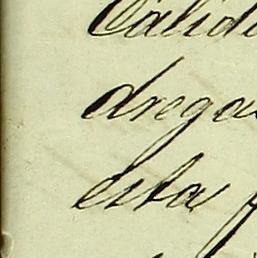 Calid
drega
esta